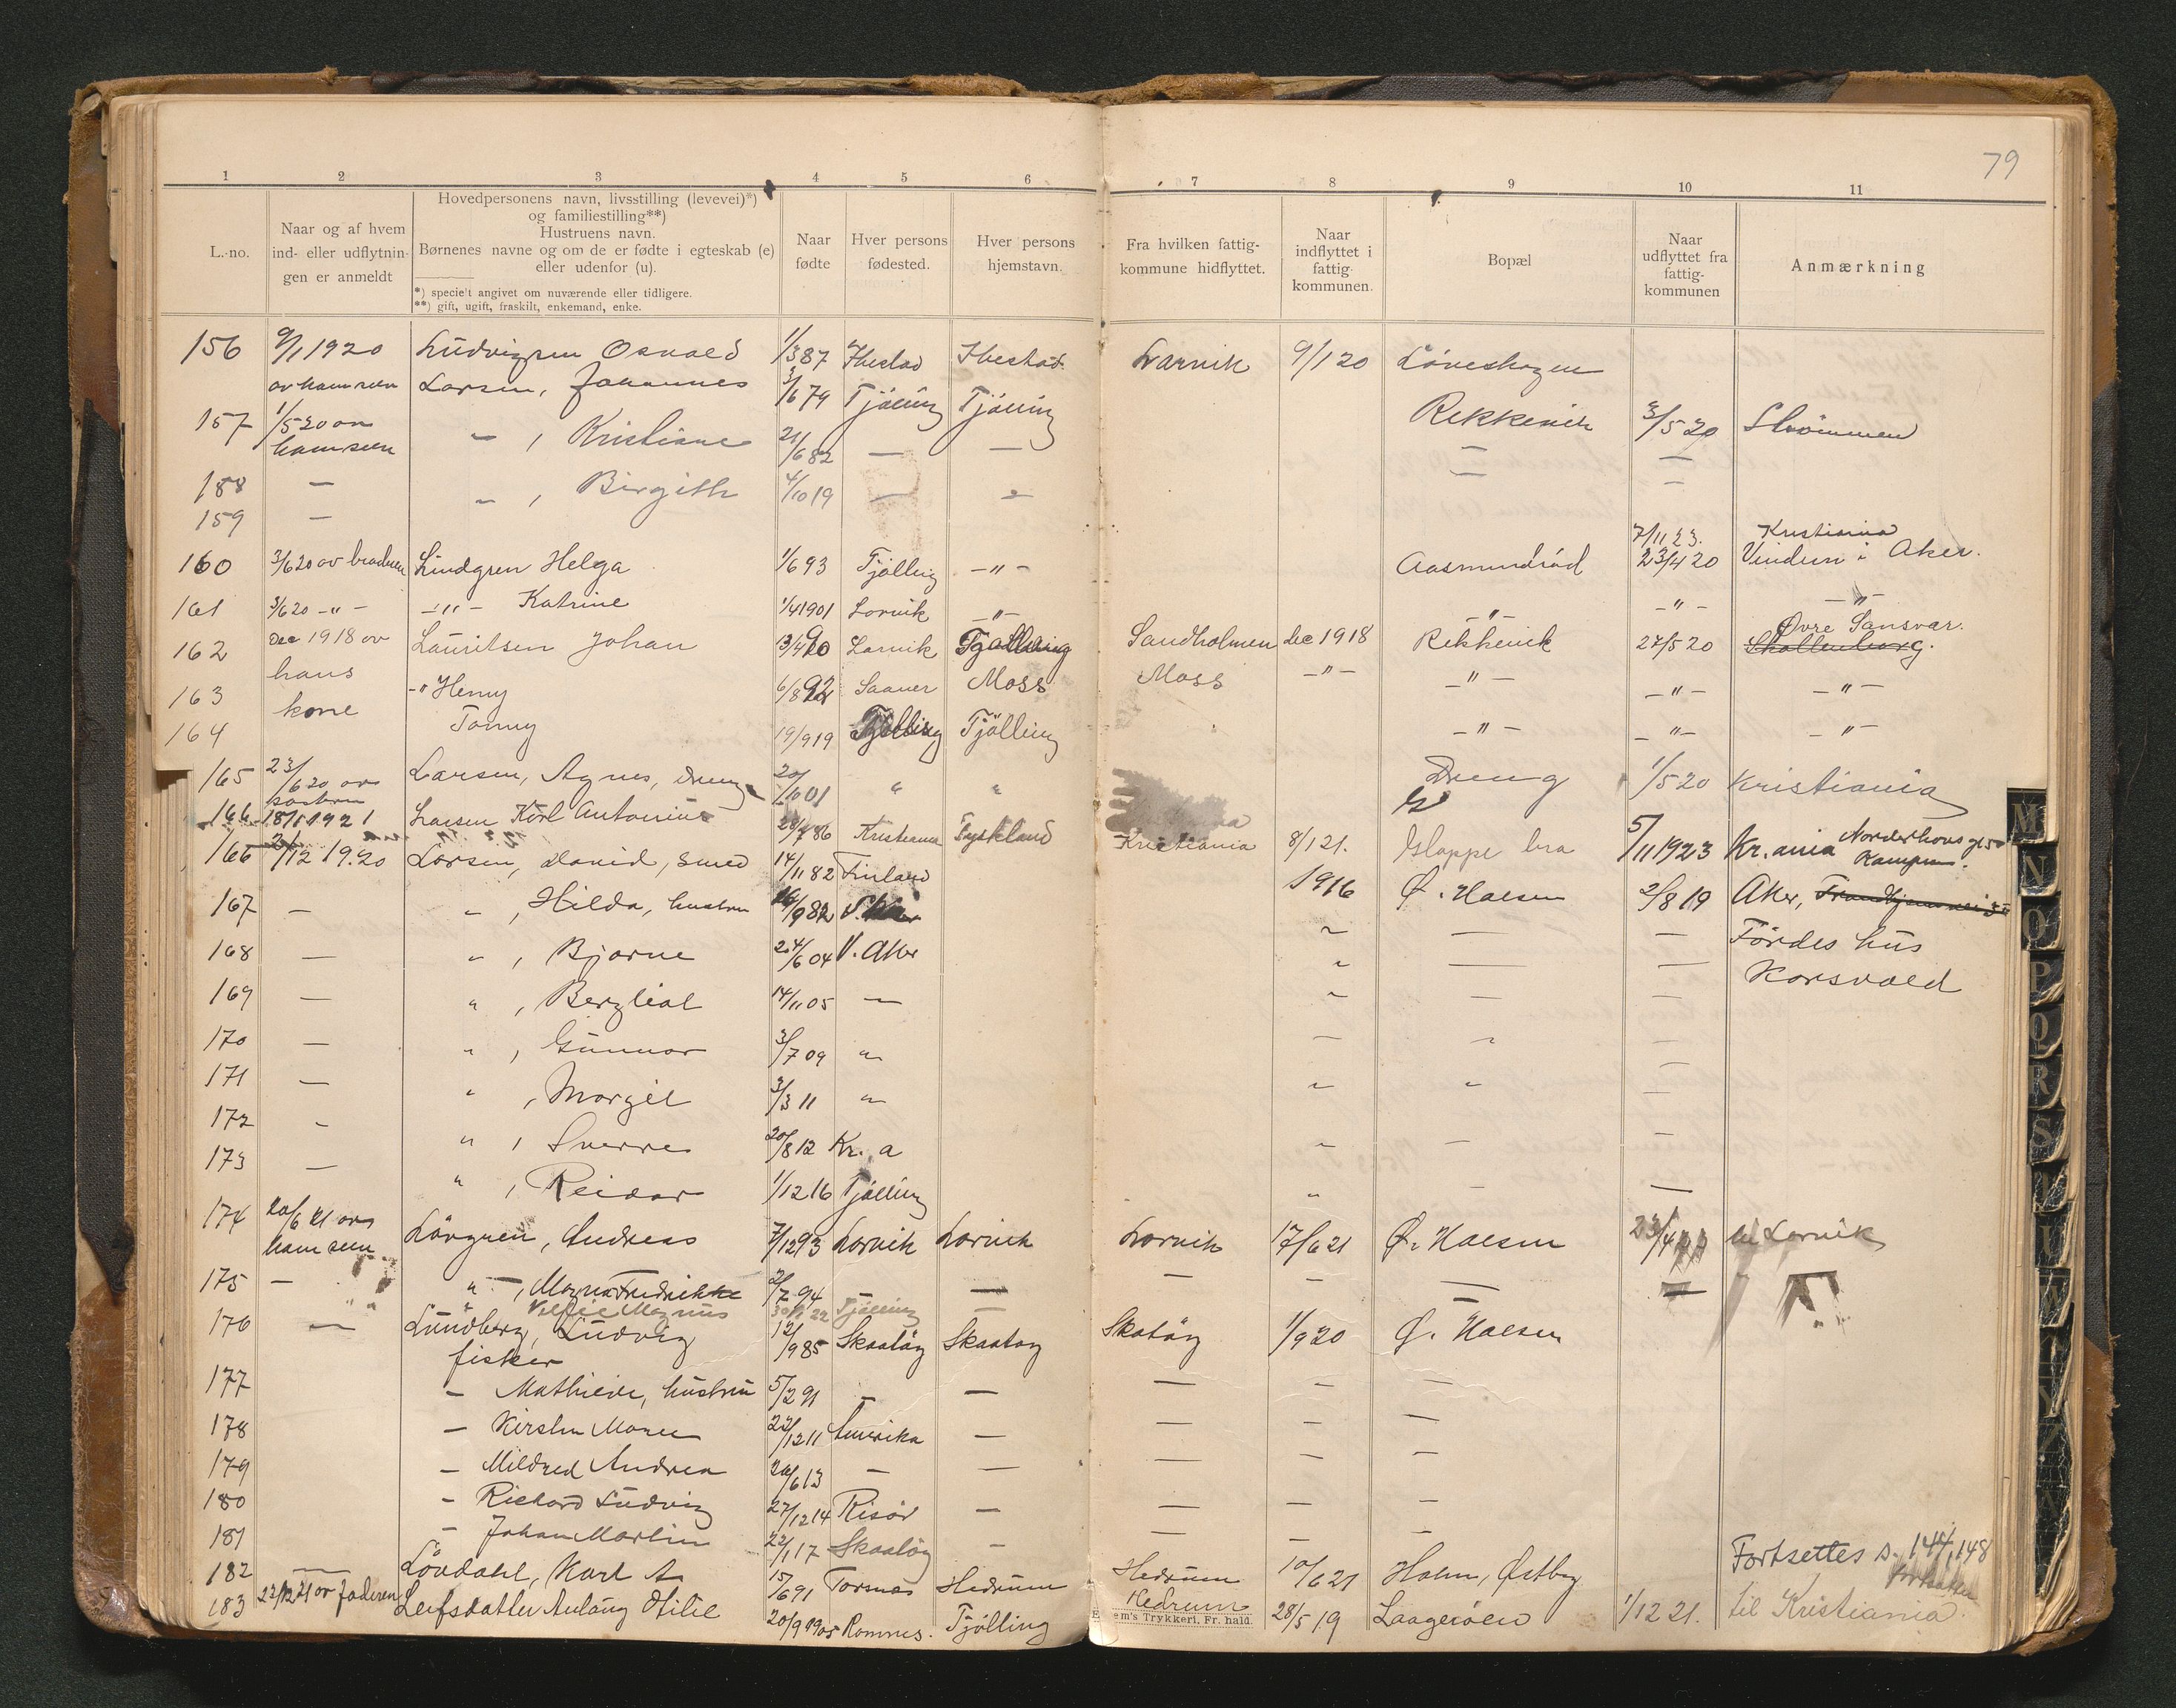 79
1 2 3 4 5 6 7 8 9 10 11
L.-no.
Naar og af hvem ind- eller udflytningen er anmeldt
Hovedpersonens navn, livsstilling (levevei)*)
og familiestilling**)
Hustruens navn.
Børnenes navne og om de er fødte i egteskab (e)
eller udenfor (u).
*) specielt angivet om nuværende eller tidligere.
**) gift, ugift, fraskilt, enkemand, enke.
Naar fødte
Hver persons fødested.
Hver persons hjemstavn.
Fra hvilken fattigkommune hidflyttet.
Naar indflyttet i fattigkommunen.
Bopæl
Naar udflyttet fra fattigkommunen
Anmærkning
156 9/1 1920 Ludvigsen Osvald 1/3 87 Ibestad Ibestad Larvik 9/1 20 Löveskogen
av ham selv Larsen, Johannes 3/6 79 Tjölling Tjölling Rekkevik 3/5 20 Strömmen
157 1/5 20 av ham selv " , Kristiane 21/6 82 — — — —
158 — " , Birgith 4/10 19 — " — —
159 —
7/11 23. Kristiania
160 3/6 20 av broderen Lindgren Helga 1/6 93 Tjölling —"— Aasmundröd 23/4 20 Vindern i Aker.
161 3/6 20 —"— —"— Katrine 1/4 1901 Larvik —"— —"— —"— —"—
162 Dec 1918 av Lauritsen Johan 13/4 90 Larvik Tjölling Sandholmen dec 1918 Rekkevik 27/5 20 Øvre Sansvær. Skollenborg.
163 hans —" Henny 6/8 92 Saaner Moss Moss —"— —"— —"— —"—
164 kone Tonny 19/9 19 Tjölling Tjölling —"— —"— —"—
165 23/6 20 av Larsen, Agnes, Dreng 20/10 01 " " Dreng 1/5 20 Kristiania
166 18/1 1921 Larsen Karl Antonius 28/7 86 Kristiania Tyskland Kristiania 8/1 21. Gloppe bra 5/11 1923 Kr.ania Norderhovs gt 5 Kampen.
166 21/12 1920 Larsen, David, smed 14/11 82 Finland 1916 Ø. Halsen 2/8 19 Aker,
167 — " , Hilda, hustru 14/9 82 V. Aker " — — Fördes hus
168 — " , Bjarne 24/6 04 V. Aker " — — Korsvold
169 — " , Bergliot 14/11 05 — " — —
170 — " , Gunnar 3/7 09 " — " —
171 — " , Margit 3/3 11 " " " —
172 " " , Sverre 20/8 12 Kr.a " — —
173 — " , Reidar 1/12 16 Tjölling " — —
174 20/6 21 av ham selv Lövgren, Andreas 7/12 93 Larvik Larvik Larvik 17/6 21 Ø. Halsen 23/4 til Larvik
175 — " —, Magna Fredrikke 2/7 94 — — — — — —
" Magnus 22 Tjölling — —
176 — Lundberg, Ludvig 12/9 85 Skaatöy Skaatöy Skatöy 1/9 20 Ø. Halsen
fisker
177 — Mathilde, hustru 5/2 91 — — — — —
178 — Kirsten Maren 22/12 11 Amerika — — — —
179 — Mildred Andrea 20/6 13 — — — — —
180 — Richard Ludvig 27/12 14 Risör — — — —
181 — Johan Martin 22/1 17 Skaatöy — — — —
182 — Lövdahl, Karl A 15/6 91 Torsnes Hedrum Hedrum 10/6 21 Holm, Østby Fortsettes s. 144, 148
183 22/12 21 av faderen Leifsdatter Aslaug Otilie 20/9 1905 Ramnes. Tjölling Hedrum 28/5 19 Laageröen 1/12 21. til Kristiania.
m's Trykkeri, Fr. hald.
M
N
O
P
Q
R
S
T
U
W
Y
Z